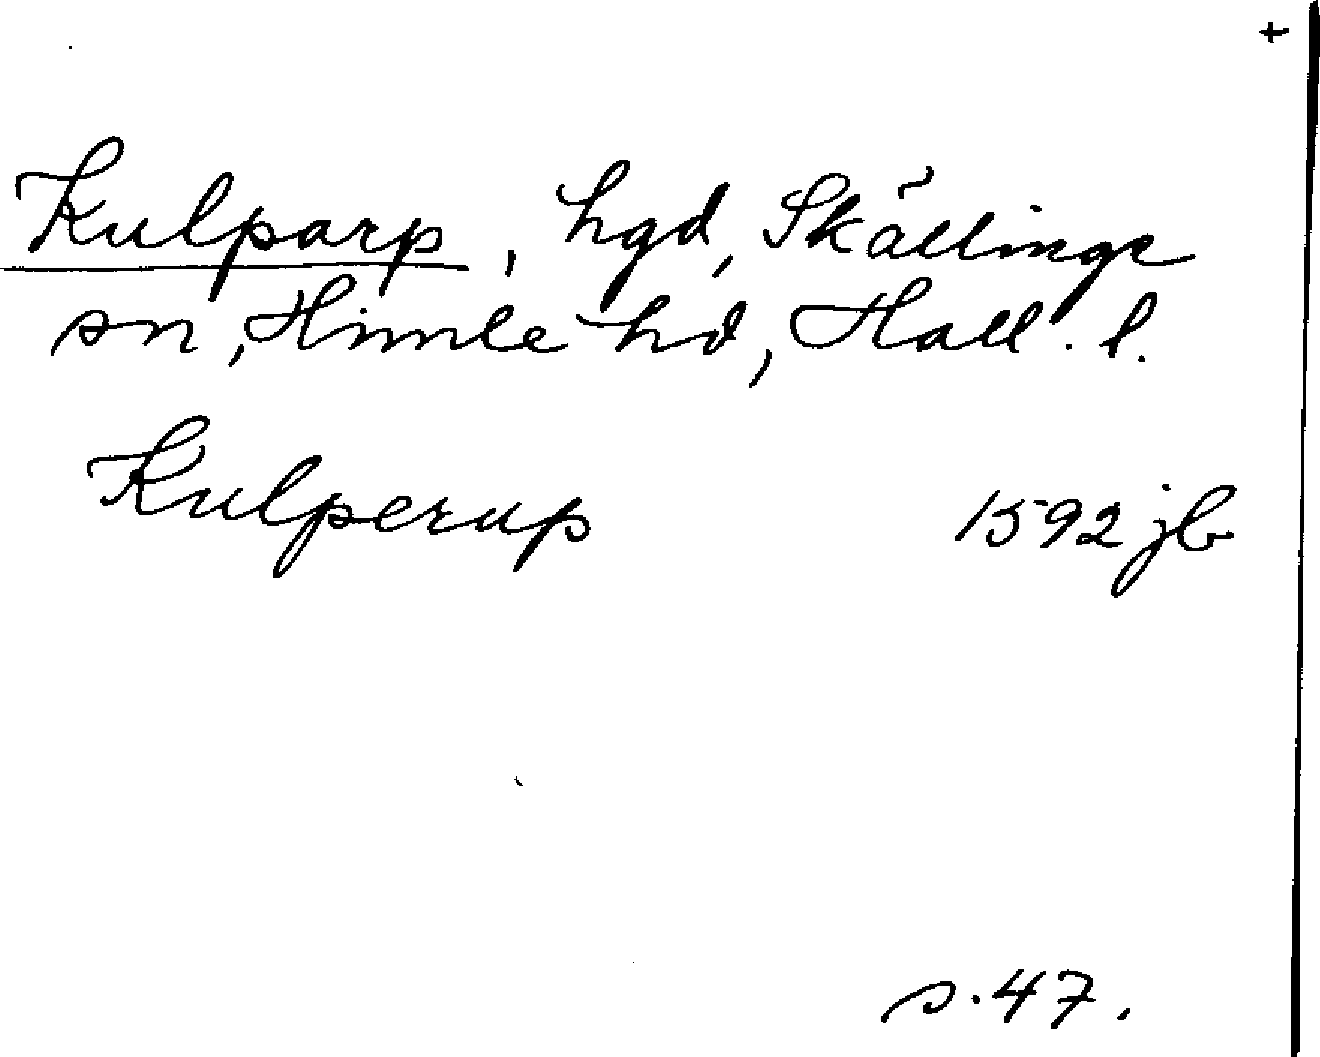 +
Kulparp, hgd, Skällinge
sn, Himle hd, Hall. l.
Kulperup 1592 jb
s. 47.